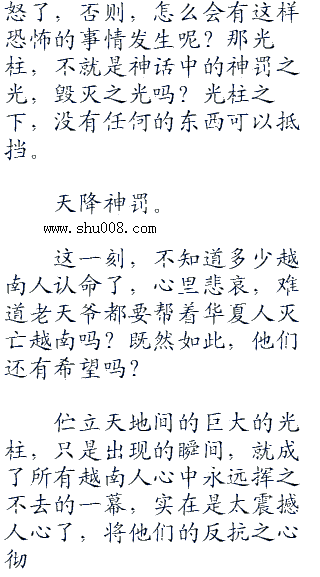 怒了，否则，怎么会有这样
恐怖的事情发生呢？那光
柱，不就是神话中的神罚之
光，毁灭之光吗？光柱之
下，没有任何的东西可以抵
挡。
天降神罚。
www.shu008.com
这一刻，不知道多少越
南人认命了，心里悲哀，难
道老天爷都要帮着华夏人灭
亡越南吗？既然如此，他们
还有希望吗？
伫立天地间的巨大的光
柱，只是出现的瞬间，就成
了所有越南人心中永远挥之
不去的一幕，实在是太震撼
人心了，将他们的反抗之心
彻